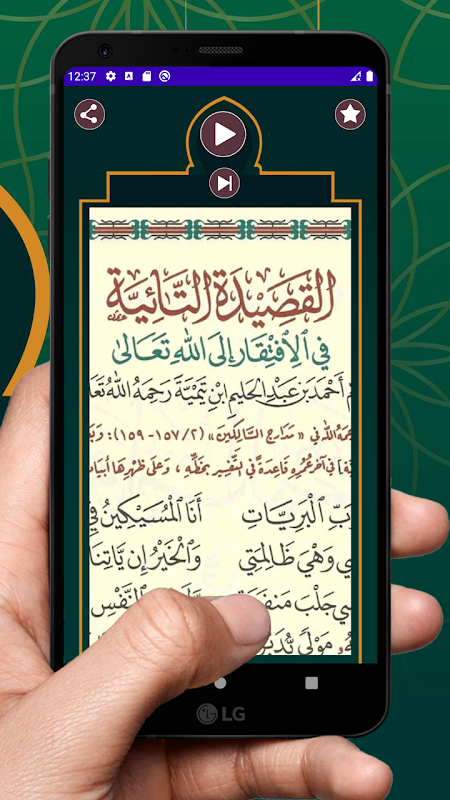 12:37
القَصِيدَةُ التَّائِيَّةُ
فِي الِافْتِقَارِ إِلَى اللهِ تَعَالَى
أَحْمَدَ بْنِ عَبْدِ الحَلِيمِ ابْنِ تَيْمِيَّةَ رَحِمَهُ اللهُ
اللهُ فِي «مَدَارِجِ السَّالِكِينَ» (٢/ ١٥٧-١٥٩):
فِي آخِرِ عُمُرِهِ قَاعِدَةً فِي التَّفْسِيرِ بِخَطِّهِ ، وَعَلَى ظَهْرِهَا أَبْيَات
البَرِيَّاتِ أَنَا المُسَيْكِينُ
وَهْيَ ظَالِمَتِي وَالخَيْرُ إِنْ يَأْتِنَا
جَلْبَ النَّفْسِ
مَوْلًى
LG